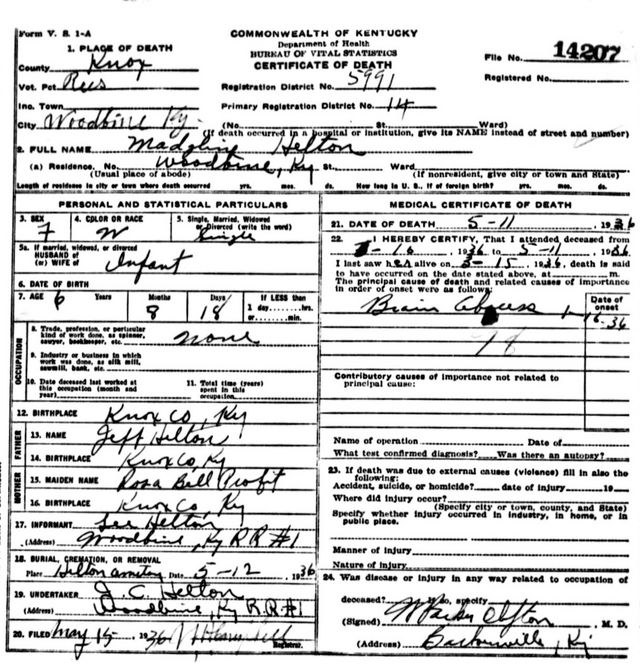 Form V. S. 1-A
COMMONWEALTH OF KENTUCKY
Department of Health
BUREAU OF VITAL STATISTICS
CERTIFICATE OF DEATH
File No. 14207
Registered No.
1. PLACE OF DEATH
County Knox
Vot. Pct
Registration District No. 5991
Inc. Town
Primary Registration District No. 14
City Woodbine Ky. (No. St. Ward)
(If death occurred in a hospital or institution, give its NAME instead of street and number)
2. FULL NAME Madgline Helton
(a) Residence. No. Woodbine, Ky St. Ward
(Usual place of abode) (If nonresident, give city or town and State)
Length of residence in city or town where death occurred yrs. mos. ds. How long in U. S., if of foreign birth? yrs. mos. ds.
PERSONAL AND STATISTICAL PARTICULARS
3. SEX F
4. COLOR OR RACE W
5. Single, Married, Widowed or Divorced (write the word) Single
5a. If married, widowed, or divorced
HUSBAND of
(or) WIFE of Infant
6. DATE OF BIRTH
7. AGE 6 Years Months 9 Days 18 If LESS than
1 day......hrs.
or......min.
OCCUPATION
8. Trade, profession, or particular
kind of work done, as spinner,
sawyer, bookkeeper, etc. none
9. Industry or business in which
work was done, as silk mill,
sawmill, bank, etc.
10. Date deceased last worked at
this occupation (month and
year)
11. Total time (years)
spent in this
occupation
12. BIRTHPLACE Knox Co, Ky
FATHER
13. NAME Jeff Helton
14. BIRTHPLACE Knox Co, Ky
MOTHER
15. MAIDEN NAME Rosa Bell Profit
16. BIRTHPLACE Knox Co, Ky
17. INFORMANT Helton
(Address) Woodbine, Ky R R #1
18. BURIAL, CREMATION, OR REMOVAL
Place Helton Date 5-12 1936
19. UNDERTAKER J. C. Helton
(Address) Woodbine, Ky R R #1
20. FILED May 15 1936
Registrar.
MEDICAL CERTIFICATE OF DEATH
21. DATE OF DEATH 5-11 1936
22. I HEREBY CERTIFY, That I attended deceased from
16 1936 to 5-11 1936
I last saw her alive on 5-15 1936, death is said
to have occurred on the date stated above, at m.
The principal cause of death and related causes of importance
in order of onset were as follows:
Date of
onset
Brain Abscess 1-16-36
18
Contributory causes of importance not related to
principal cause:
Name of operation Date of
What test confirmed diagnosis? Was there an autopsy?
23. If death was due to external causes (violence) fill in also the
following:
Accident, suicide, or homicide? date of injury 19
Where did injury occur?
(Specify city or town, county, and State)
Specify whether injury occurred in industry, in home, or in
public place.
Manner of injury
Nature of injury
24. Was disease or injury in any way related to occupation of
deceased? If so, specify
(Signed) M. D.
(Address) Barbourville, Ky